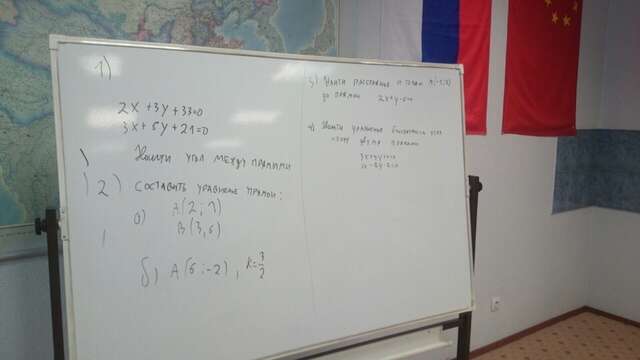 1)
2x + 3y + 33=0
3x + 5y + 21=0
Найти угол между прямыми
2) Составить уравнение прямой:
а) A(2; 7)
B(3, 6)
б) A(6; -2), K= 3/2
3) Найти расстояние от точки
до прямой
4) Найти уравнение биссектрисы угла
между двумя прямыми